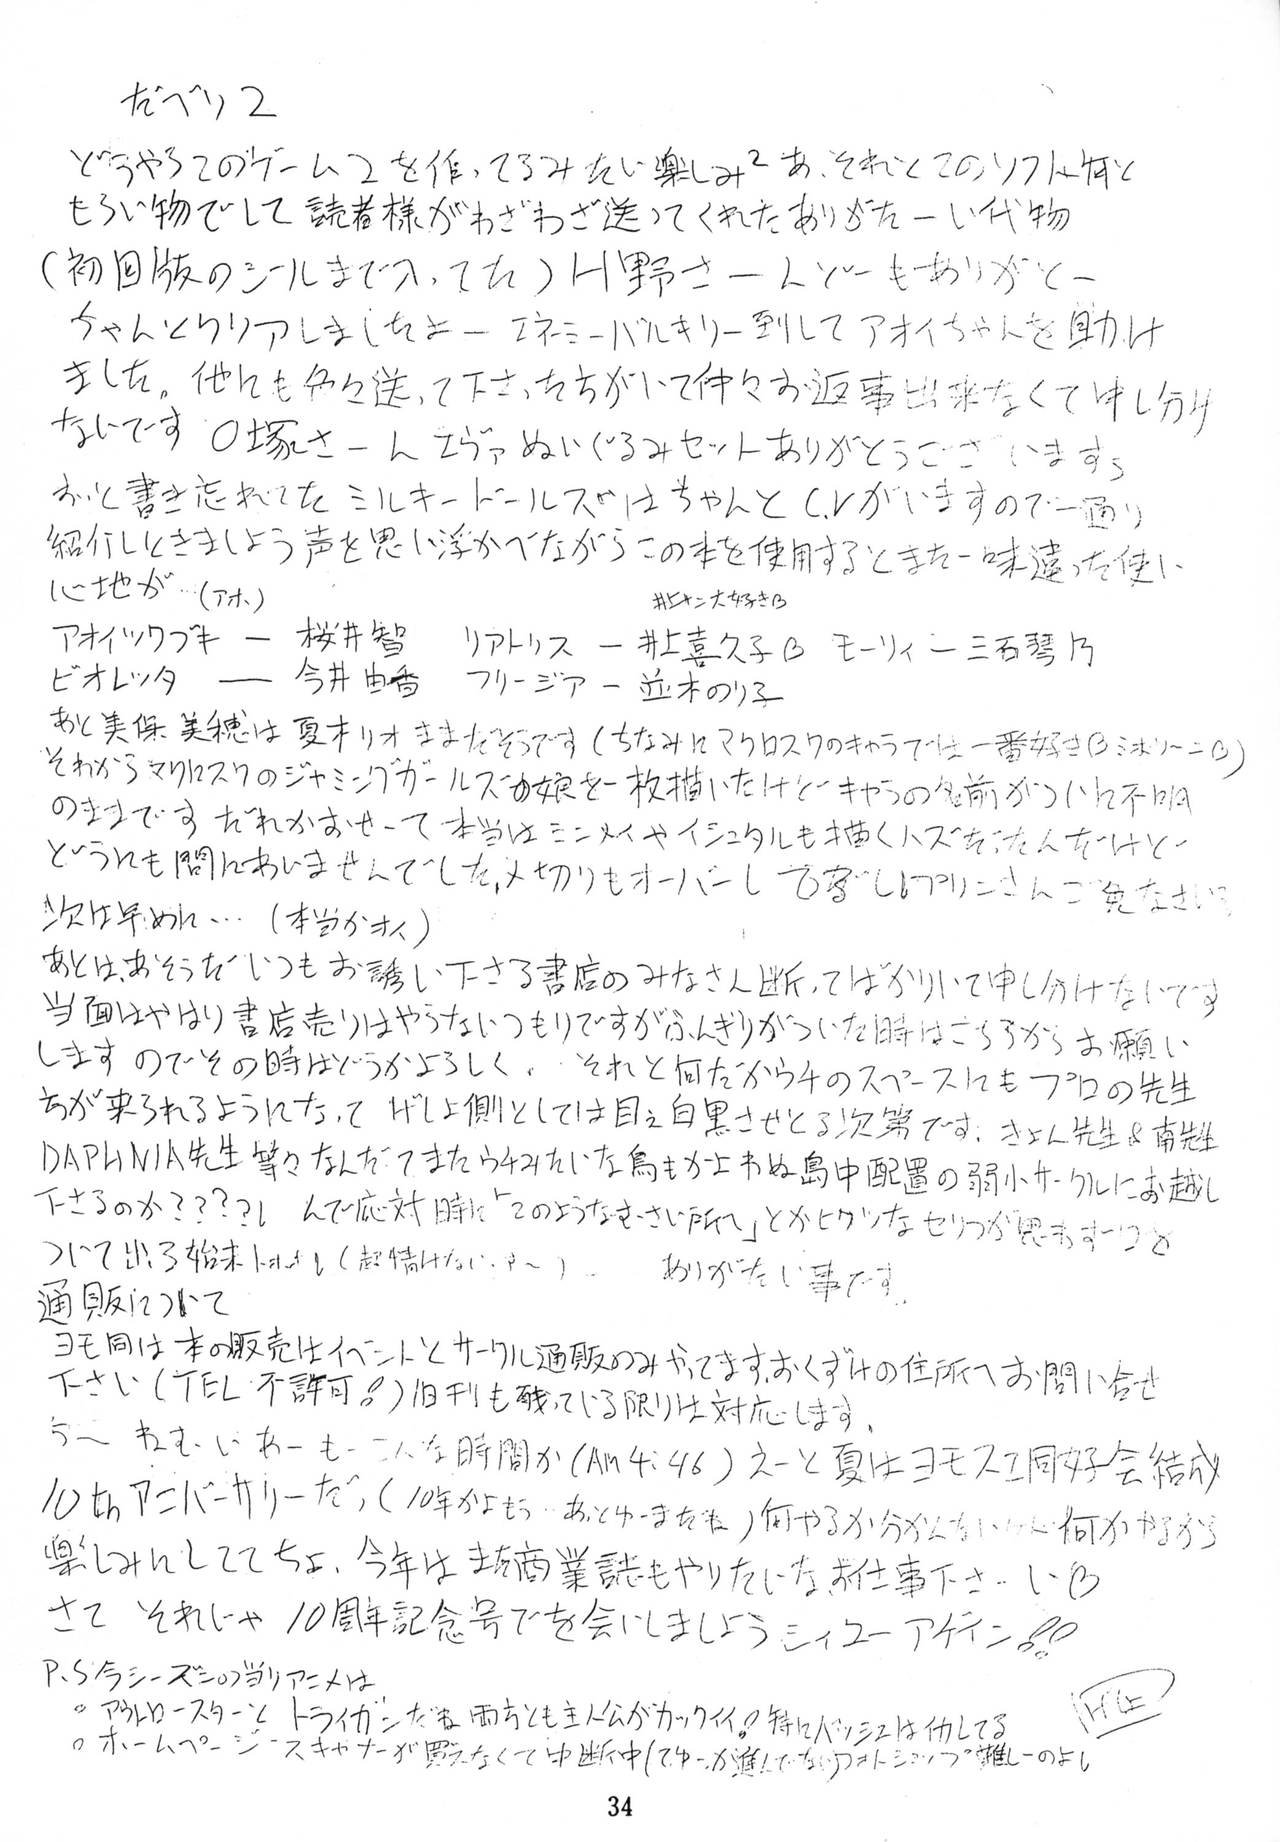 だべり2
どうやらこのゲーム2を作ってるみたい楽しみ² あ、それとこのソフト何と
もらい物でして読者様がわざわざ送ってくれたありがたーい代物
(初回版のシールまで入ってた) H野さーんどーもありがとー
ちゃんとクリアしましたよー エネミーバルキリー倒してアオイちゃんを助け
ました。他にも色々送って下さった方がいて仲々お返事出来なくて申し分け
ないです O塚さーん エヴァぬいぐるみセットありがとうございます
おっと書き忘れてた ミルキードールズはちゃんとC.Vがいますので一通り
紹介しときましょう声を思い浮かべながらこの本を使用するとまた一味違った使い
心地が…(アホ)
井上サン大好き
アオイツワブキ ー 桜井智 リアトリス ー 井上喜久子 モーリィー三石琴乃
ビオレッタ ー 今井由香 フリージア ー 並木のり子
あと美保美穂は夏木リオままだそうです(ちなみにマクロスクのキャラでは一番好き ミホリーニ)
それからマクロスクのジャミングガールズの娘を一枚描いたけどキャラの名前がついに不明
のままです だれかおせーて 本当はミンメイやイシュタルも描くハズだったんだけど
どうにも間にあいませんでした,〆切りもオーバーし プリンさんご免なさい
次は早めに…(本当かオイ)
あとは、あそうだいつもお誘い下さる書店のみなさん断ってばかりいて申し分けないです
当面はやはり書店売りはやらないつもりですがふんぎりがついた時はこちらからお願い
しますのでその時はどうかよろしく、 それと何だかウチのスペースにもプロの先生
方が来られるようになって げしょ側としては目を白黒させとる次第です、きょん先生&南先生
DAPHNIA先生等々なんだってまたウチみたいな鳥もかよわぬ島中配置の弱小サークルにお越し
下さるのか????! んで応対時に「このようなむさい所へ」とかヒクツなセリフが思わず
ついて出る始末 (超情けない) ありがたい事です.
通販について
ヨモ同は本の販売はイベントとサークル通販のみやってます,おくずけの住所へお問い合せ
下さい(TEL不許可!!)旧刊も残っている限りは対応します,
うー ねむーいわーもーこんな時間か(Am4:46)えーと夏はヨモスエ同好会結成
10thアニバーサリーだっ(10年かよもう…あっとゆーまだね)何やるか分かんないけど何かやるから
楽しみにしててちょ、今年はまた商業誌もやりたいな,お仕事下さーい
さて それじゃ10周年記念号でお会いしましょうシィユーアゲイン!!
P.S今シーズンの当りアニメは
○ アウトロースターとトライガンだね両方とも主人公がカックイイ!特にバッシュはイカしてる
○ ホームページ スキャナーが買えなくて中断中(てゆーか進んでない)フォトショップ難しーのよし
34